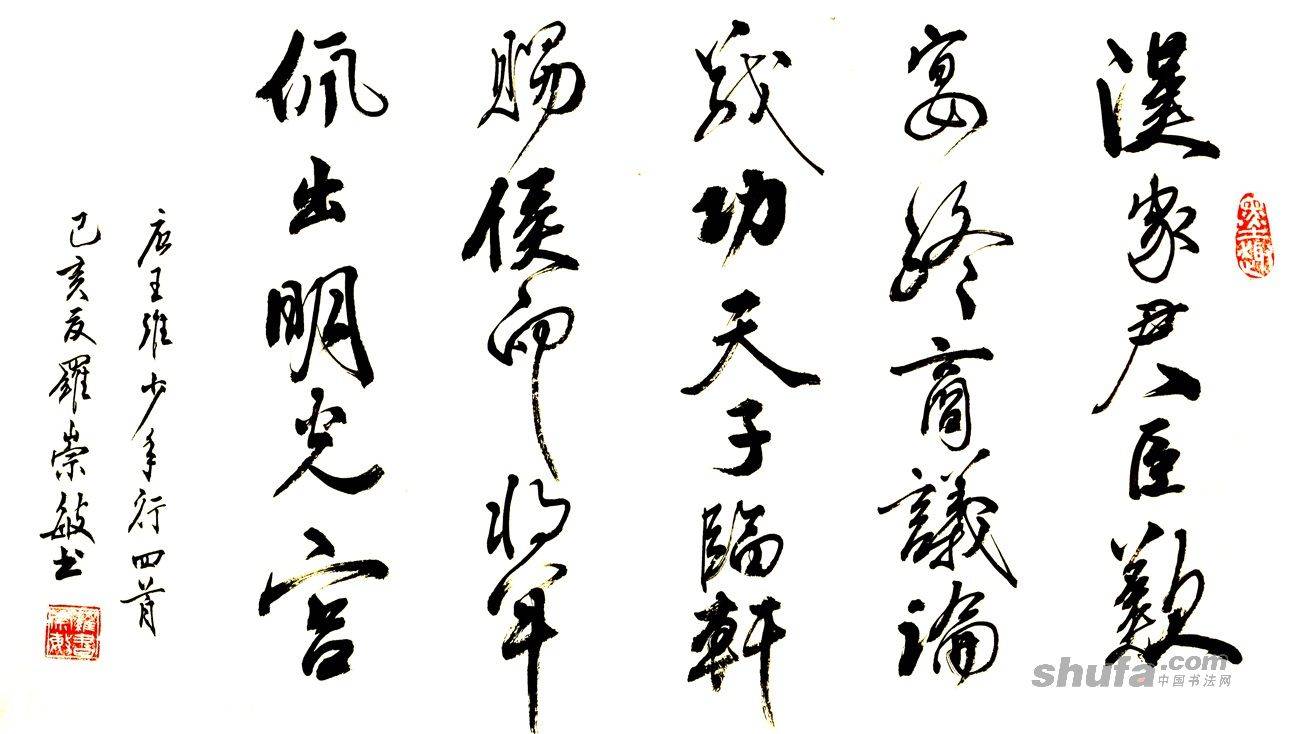 漢家君臣歡
宴終商議論
戰功天子臨軒
賜侯印將軍
佩出明光宮
唐王維少年行四首
己亥夏羅崇敏书
shufa.com
中国书法网